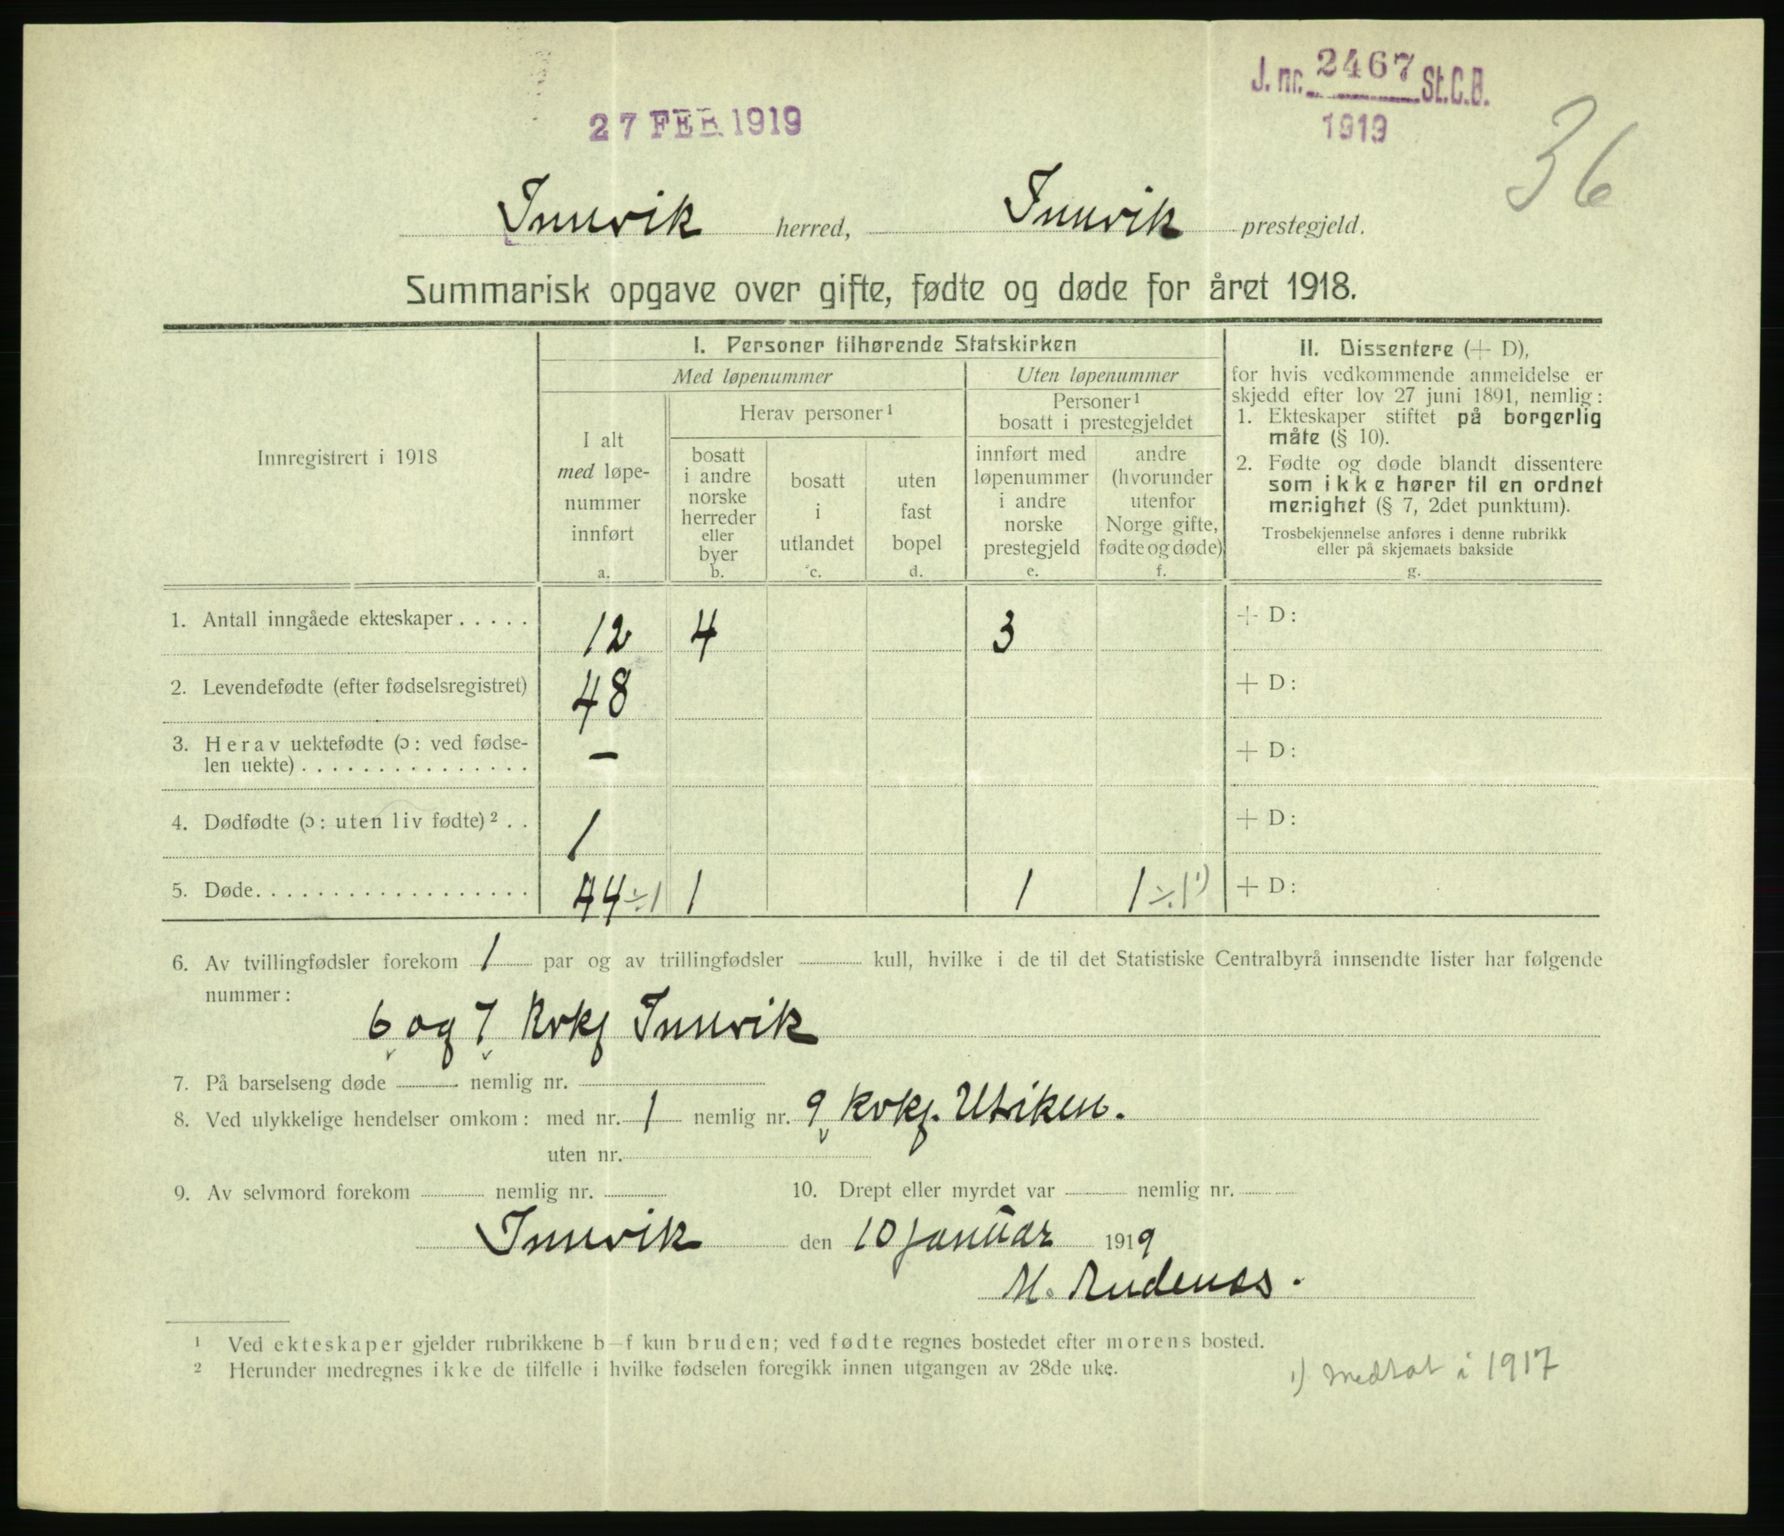 J. nr. 2467 St.C.B.
1919
27 FEB 1919
36
Innvik herred, Innvik prestegjeld.
Summarisk opgave over gifte, fødte og døde for året 1918.
Innregistrert i 1918
I. Personer tilhørende Statskirken
Med løpenummer
Uten løpenummer
I alt
med løpe-
nummer
innført
a.
Herav personer ¹
bosatt
i andre
norske
herreder
eller
byer
b.
bosatt
i
utlandet
c.
uten
fast
bopel
d.
Personer ¹
bosatt i prestegjeldet
innført med
løpenummer
i andre
norske
prestegjeld
e.
andre
(hvorunder
utenfor
Norge gifte,
fødte og døde)
f.
II. Dissentere (+ D),
for hvis vedkommende anmeldelse er
skjedd efter lov 27 juni 1891, nemlig:
1. Ekteskaper stiftet på borgerlig
måte (§ 10).
2. Fødte og døde blandt dissentere
som ikke hører til en ordnet
menighet (§ 7, 2det punktum).
Trosbekjennelse anføres i denne rubrikk
eller på skjemaets bakside
g.
1. Antall inngåede ekteskaper . . . . . 12 4 3 + D:
2. Levendefødte (efter fødselsregistret) 48 + D:
3. Herav uektefødte (ɔ: ved fødse-
len uekte) . . . . . . . . . . . . . . . — + D:
4. Dødfødte (ɔ: uten liv fødte) ² . . 1 + D:
5. Døde. . . . . . . . . . . . . . . . . . 44 ÷1 1 1 1 ÷1 ¹) + D:
6. Av tvillingfødsler forekom 1 par og av trillingfødsler kull, hvilke i de til det Statistiske Centralbyrå innsendte lister har følgende
nummer:
6 og 7 Kvkj Innvik
7. På barselseng døde nemlig nr.
8. Ved ulykkelige hendelser omkom: med nr. 1 nemlig nr. 9 Kvkj. Utviken.
uten nr.
9. Av selvmord forekom nemlig nr. 10. Drept eller myrdet var nemlig nr.
Innvik den 10 januar 1919
M. Rudenes.
¹ Ved ekteskaper gjelder rubrikkene b–f kun bruden; ved fødte regnes bostedet efter morens bosted.
² Herunder medregnes ikke de tilfelle i hvilke fødselen foregikk innen utgangen av 28de uke.
¹) medtat i 1917